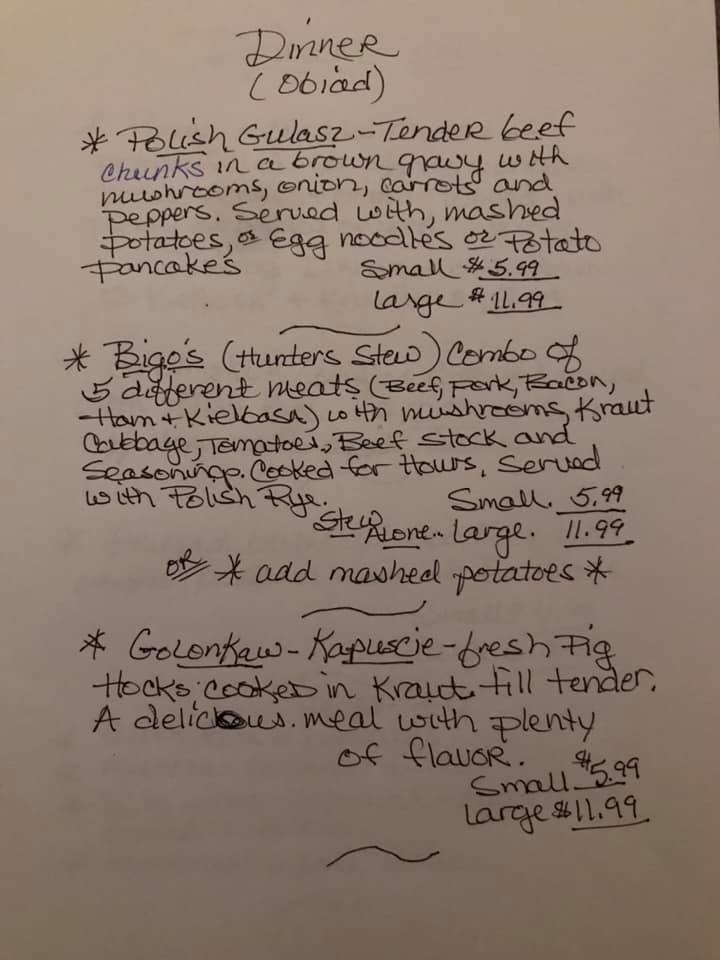 Dinner
(Obiad)
* Polish Gulasz - Tender beef
chunks in a brown gravy with
mushrooms, onion, carrots and
peppers. Served with, mashed
potatoes, or Egg noodles or Potato
pancakes
Small $5.99
Large $11.99
* Bigo's (Hunters Stew) Combo of
5 different meats (Beef, Pork, Bacon,
Ham + Kielbasa) with mushrooms, Kraut
Cabbage, Tomatoes, Beef stock and
Seasonings. Cooked for Hours, Served
with Polish Rye.
Small. 5.99
Stew Alone.. Large. 11.99
OR * add mashed potatoes *
* Golonkaw - Kapuscie - fresh Pig
Hocks cooked in Kraut till tender.
A delicious. meal with plenty
of flavor.
Small $5.99
Large $11.99